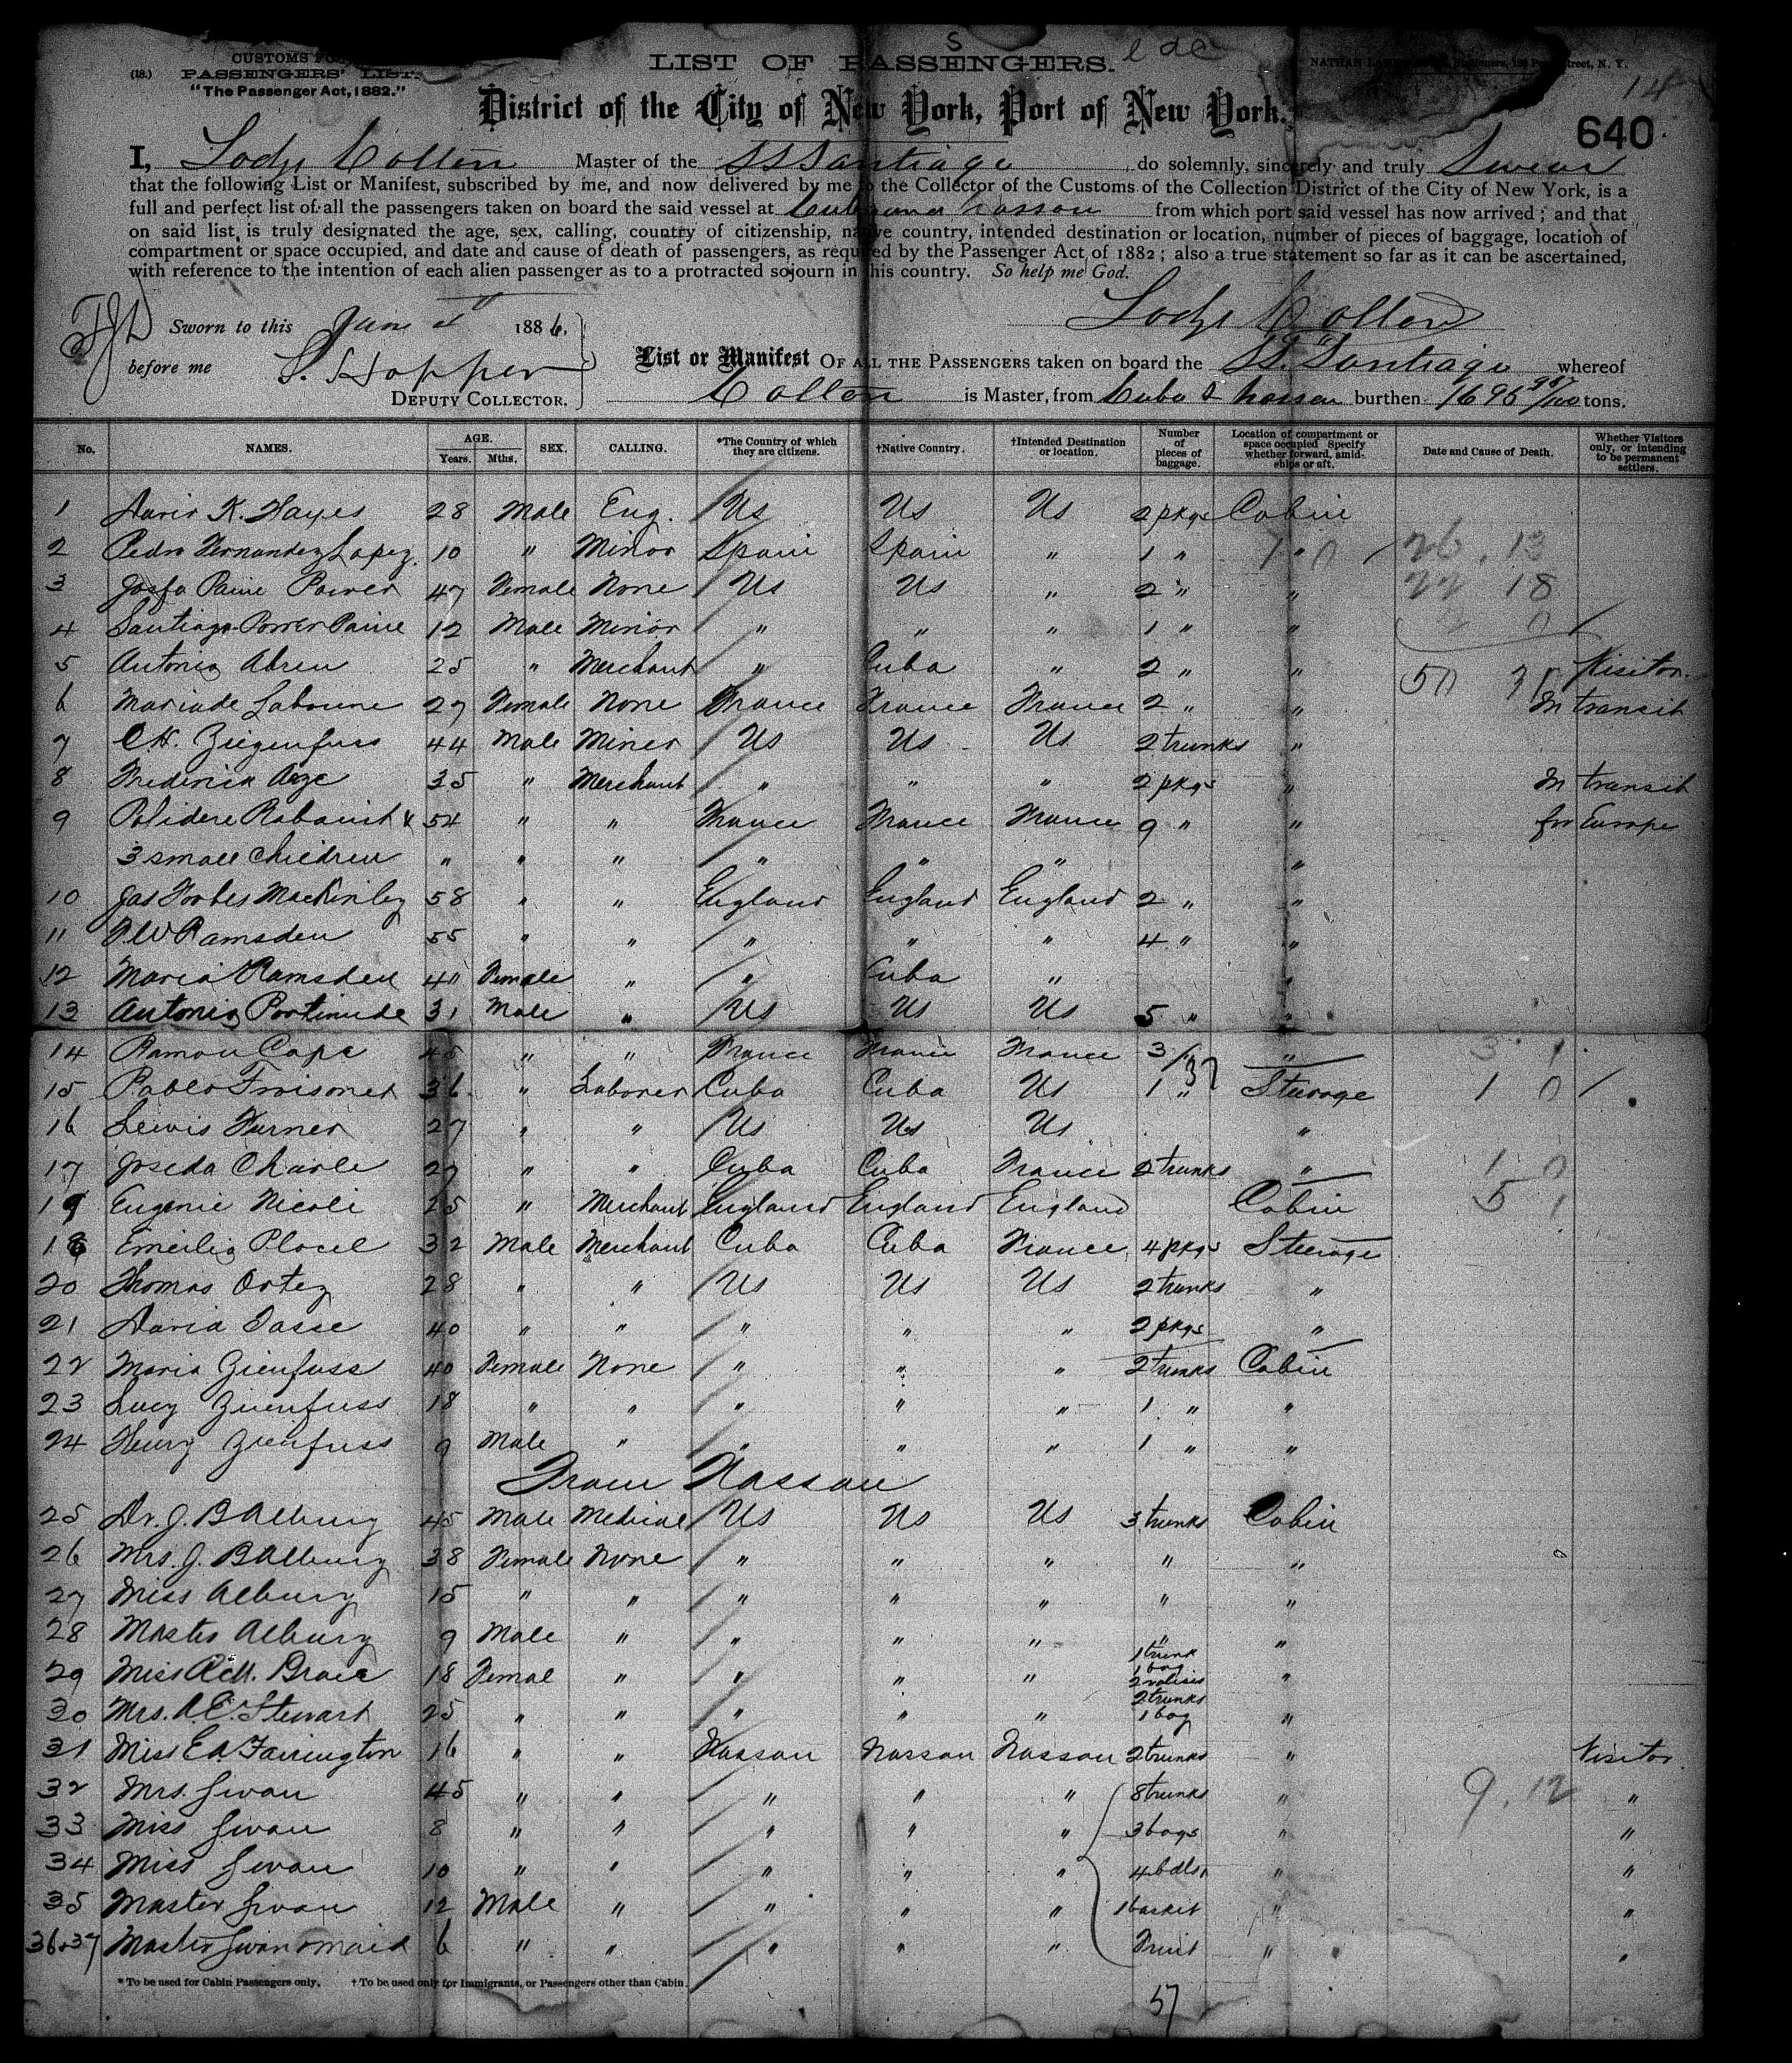 S
CUSTOMS
LIST OF PASSENGERS.
(18.) PASSENGERS' LIST.
"The Passenger Act, 1882."
NATHAN Stationers, Street, N. Y.
14
District of the City of New York, Port of New York.
640
I, Lody Colton Master of the SS Santiago do solemnly, sincerely and truly Swear
that the following List or Manifest, subscribed by me, and now delivered by me to the Collector of the Customs of the Collection District of the City of New York, is a
full and perfect list of all the passengers taken on board the said vessel at Cuba and Nassau from which port said vessel has now arrived; and that
on said list, is truly designated the age, sex, calling, country of citizenship, native country, intended destination or location, number of pieces of baggage, location of
compartment or space occupied, and date and cause of death of passengers, as required by the Passenger Act of 1882; also a true statement so far as it can be ascertained,
with reference to the intention of each alien passenger as to a protracted sojourn in this country. So help me God.
Lody Colton
Sworn to this June 1886,
before me S. Hopper
DEPUTY COLLECTOR.
List or Manifest OF ALL THE PASSENGERS taken on board the SS. Santiago whereof
Colton is Master, from Cuba & Nassau burthen 1695 tons.
No. NAMES. AGE. Years. Mths. SEX. CALLING. *The Country of which they are citizens. †Native Country. †Intended Destination or location. Number of pieces of baggage. Location of compartment or space occupied Specify whether forward, amidships or aft. Date and Cause of Death. Whether Visitors only, or intending to be permanent settlers.
1 David K. Hayes 28 Male Eng. Us Us Us 2 pkgs Cabin
2 Pedro Hernandez Lopez 10 " Minor Spain Spain " 1 " " 26. 13
3 Josfa Paine Power 47 Female None Us Us " 2 " " 18
4 Santiago Power Paine 12 Male Minor " " " 1 " "
5 Antonio Abreu 25 " Merchant " Cuba " 2 " " 50 Visitor.
6 Mariade Laborine 27 Female None France France France 2 " " In transit
7 C.H. Ziegenfuss 44 Male Miner Us Us Us 2 trunks "
8 Frederick Arze 35 " Merchant " " " 2 pkgs " In transit
9 Polidere Rabainit & 54 " " France France France 9 " " for Europe
3 small Children " " " " " " "
10 Jas Forbes MacKinley 58 " " England England England 2 " "
11 F W Ramsden 55 " " " " " 4 " "
12 Maria Ramsden 40 Female " " Cuba " "
13 Antonio Portinude 31 Male " Us Us Us 5 " "
14 Ramon Cape 45 " " France France France 3/37 " 3 1
15 Pablo Froisoner 36 " Laborer Cuba Cuba Us 1 " Steerage 1 0
16 Lewis Turner 27 " " Us Us Us "
17 Joseda Charle 27 " " Cuba Cuba France 2 trunks " 1 0
19 Eugenie Nicoli 25 " Merchant England England England Cabin 5 1
18 Emeilig Placel 32 Male Merchant Cuba Cuba France 4 pkgs Steerage
20 Thomas Ortez 28 " " Us Us Us 2 trunks "
21 David Dasse 40 " " " " " 2 pkgs "
22 Maria Zienfuss 40 Female None " " " 2 trunks Cabin
23 Lucy Zienfuss 18 " " " " " 1 " "
24 Henry Zienfuss 9 Male " " " " 1 " "
From Nassau
25 Dr. J. B Albury 45 Male Medical Us Us Us 3 trunks Cabin
26 Mrs. J. B Albury 38 Female None " " " " "
27 Miss Albury 15 " " " " " " "
28 Master Albury 9 Male " " " " " "
29 Miss R. M. Brace 18 Femal " " " " 1 trunk 1 bag 2 valises "
30 Mrs. A. E. Stewart 25 " " " " " 2 trunks 1 bag "
31 Miss E A Farrington 16 " " Nassau Nassau Nassau 2 trunks " Visitor
32 Mrs. Swan 45 " " " " " 8 trunks " 9. 12 "
33 Miss Swan 8 " " " " " 3 bags " "
34 Miss Swan 10 " " " " " 4 bdls " "
35 Master Swan 12 Male " " " " 1 basket " "
36 & 37 Master Swan & maid 6 " " " " " Fruit " "
* To be used for Cabin Passengers only. † To be used only for Immigrants, or Passengers other than Cabin.
57